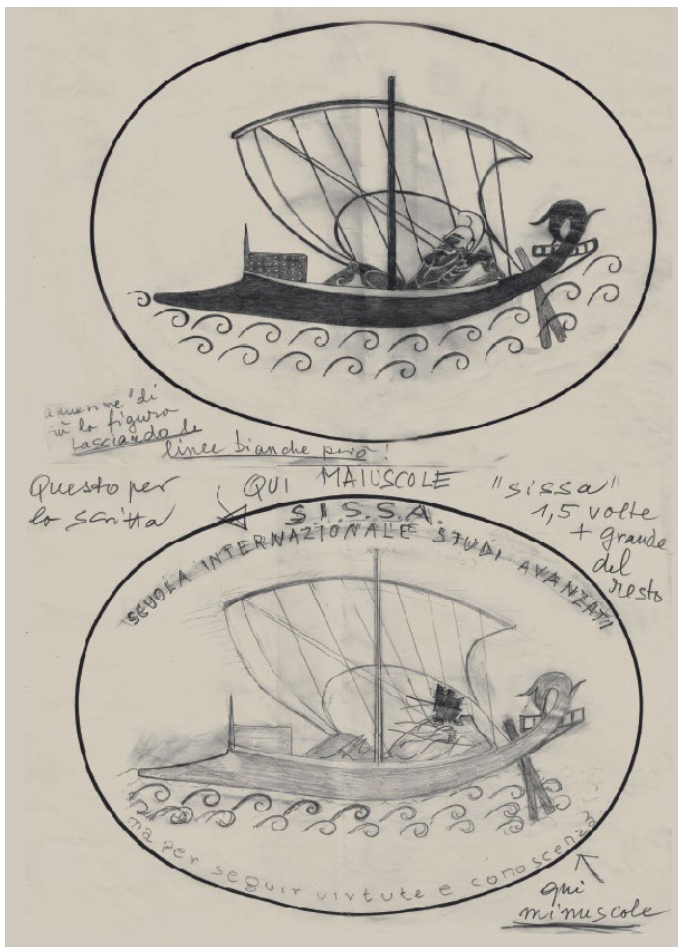 annerirne "di
più la figura
lasciando le
linee bianche però!
Questo per
la scritta
QUI MAIUSCOLE
"SISSA"
1,5 volte
+ grande
del
resto
S.I.S.S.A.
SCUOLA INTERNAZIONALE STUDI AVANZATI
ma per seguir virtute e conoscenza
qui
minuscole